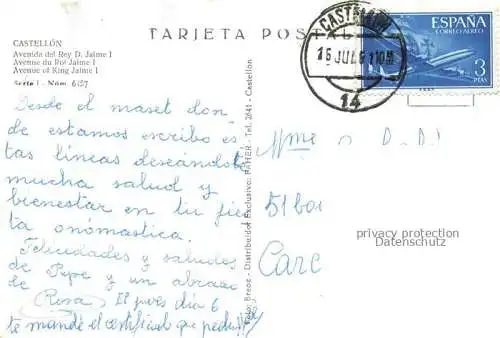 TARJETA POSTAL
CASTELLÓN
Avenida del Rey D. Jaime I
Avenue du Roi Jaime I
Avenue of King Jaime I
Serie I - Núm. 6157
CASTELLON
16 JUL 61 10M
14
ESPAÑA
CORREO AEREO
3
PTAS
Desde el maset don-
de estamos escribo es
tas líneas deseándote
mucha salud y
bienestar en tu fies
ta onomástica.
Felicidades y saludos
de Pepe y un abrazo
de
Rosa El jueves día 6
te mandé el certificat que
Foto: Breoc - Distribuidor Exclusivo: PAHER - Tel. 2841 - Castellón
Mme
51 bou
Care
privacy protection
Datenschutz